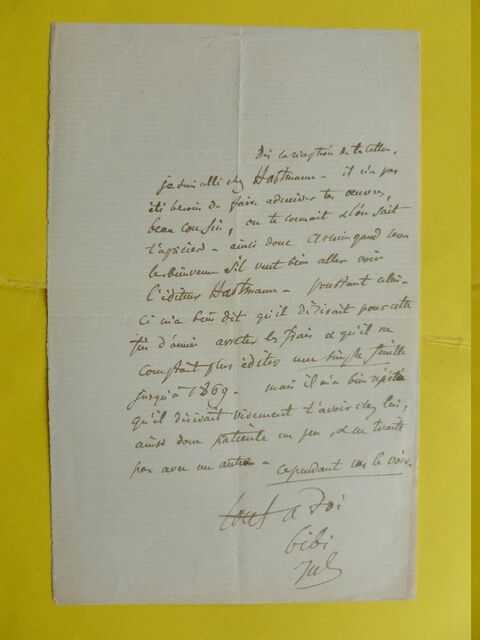 Dès la réception de ta lettre,
je suis allé chez Hartmann - il n'a pas
été besoin de faire admirer tes œuvres,
beau cousin, on te connait & l'on sait
t'apprécier - ainsi donc Armingaud sera
le bienvenu s'il veut bien aller voir
l'éditeur Hartmann - pourtant celui-
ci m'a bien dit qu'il désirait pour cette
fin d'année arrêter les frais & qu'il ne
comptait plus éditer une simple feuille
jusqu'à 1869 - mais il m'a bien répété
qu'il désirait vivement t'avoir chez lui,
ainsi donc patiente un peu, & ne traite
pas avec un autre - cependant le voir.
tout à toi
bibi